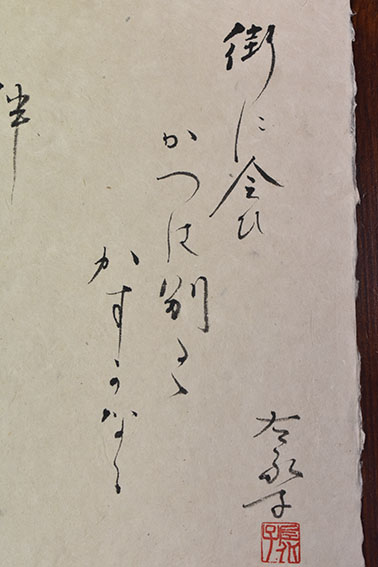 街に会ひ
かつは別るゝ
かすかなる